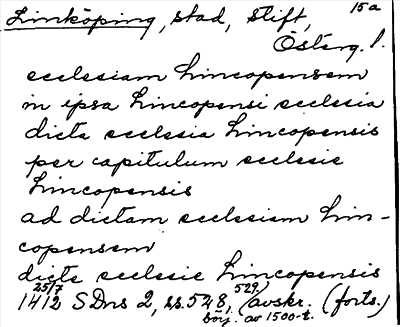 Linköping, stad, stift, 15a
Österg. l.
ecclesiam Lincopensem
in ipsa Lincopensi ecclesia
dicta ecclesia Lincopensis
per capitulum ecclesie
Lincopensis
ad dictam ecclesiam Lin-
copensem
dicte ecclesie Lincopensis
25/7 1412 SDns 2, ss. 528, 529, avskr. (forts.)
börj. av 1500-t.